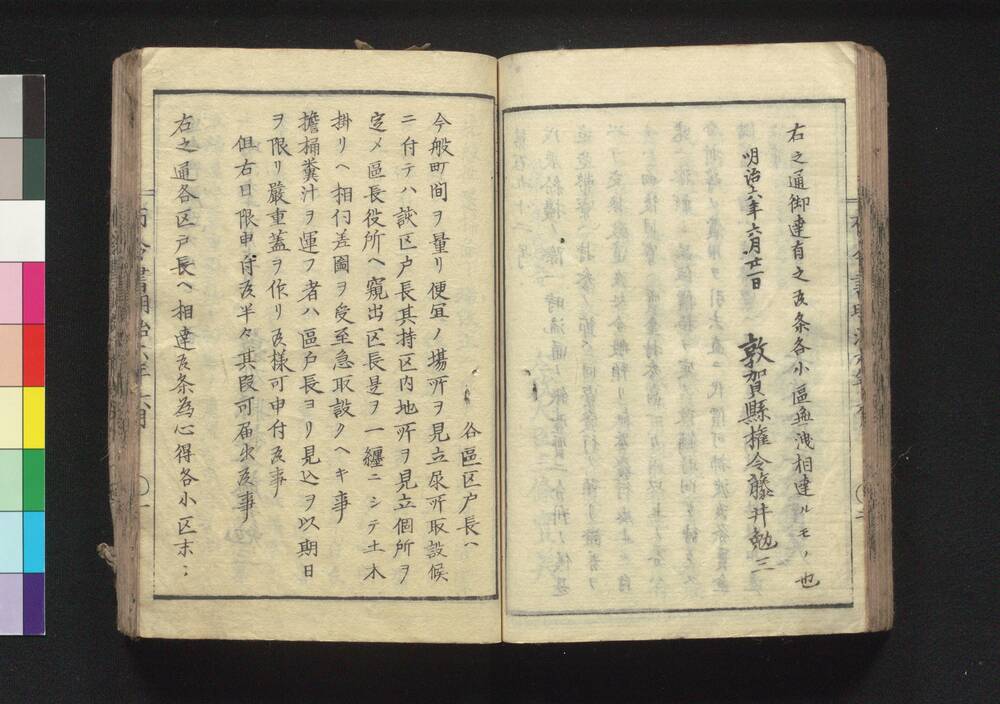 右之通御達有之候条各小區無洩相達ルモノ也
明治六年六月廿二日
敦賀縣権令藤井勉三
各區区戸長ヘ
今般町間ヲ量リ便冝ノ場所ヲ見立尿所取設候
ニ付テハ該区戸長其持区内地所ヲ見立個所ヲ
定メ區長役所ヘ窺出区長是ヲ一纏ニシテ土木
掛リヘ相付差圖ヲ受至急取設クヘキ事
擔桶糞汁ヲ運フ者ハ區戸長ヨリ見込ヲ以期日
ヲ限リ嚴重蓋ヲ作リ候様可申付候事
但右日限申付候半々其段可届出候事
右之通各区戸長ヘ相達候条為心得各小区末々